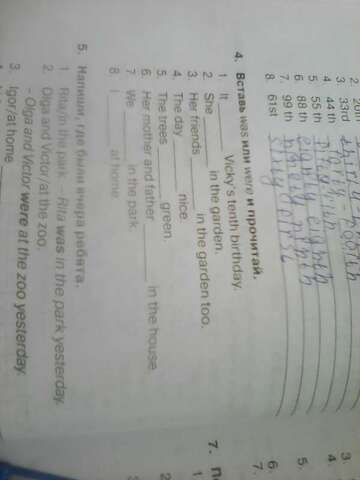 2. 20th
3. 33rd
4. 44 th forty-fourth
5. 55 th
6. 88 th eighty eighth
7. 99 th ninety ninth
8. 61st sixty
4. Вставь was или were и прочитай.
1 It ______ Vicky's tenth birthday.
2 She ______ in the garden.
3 Her friends ______ in the garden too.
4 The day ______ nice.
5 The trees ______ green.
6 Her mother and father ______ in the house
7 We ______ in the park.
8 I ______ at home
5. Напиши, где были вчера ребята.
1 Rita/in the park - Rita was in the park yesterday.
2 Olga and Victor/at the zoo.
- Olga and Victor were at the zoo yesterday.
3 Igor/at home
3.
4
5.
6.
7.
7.
1
2